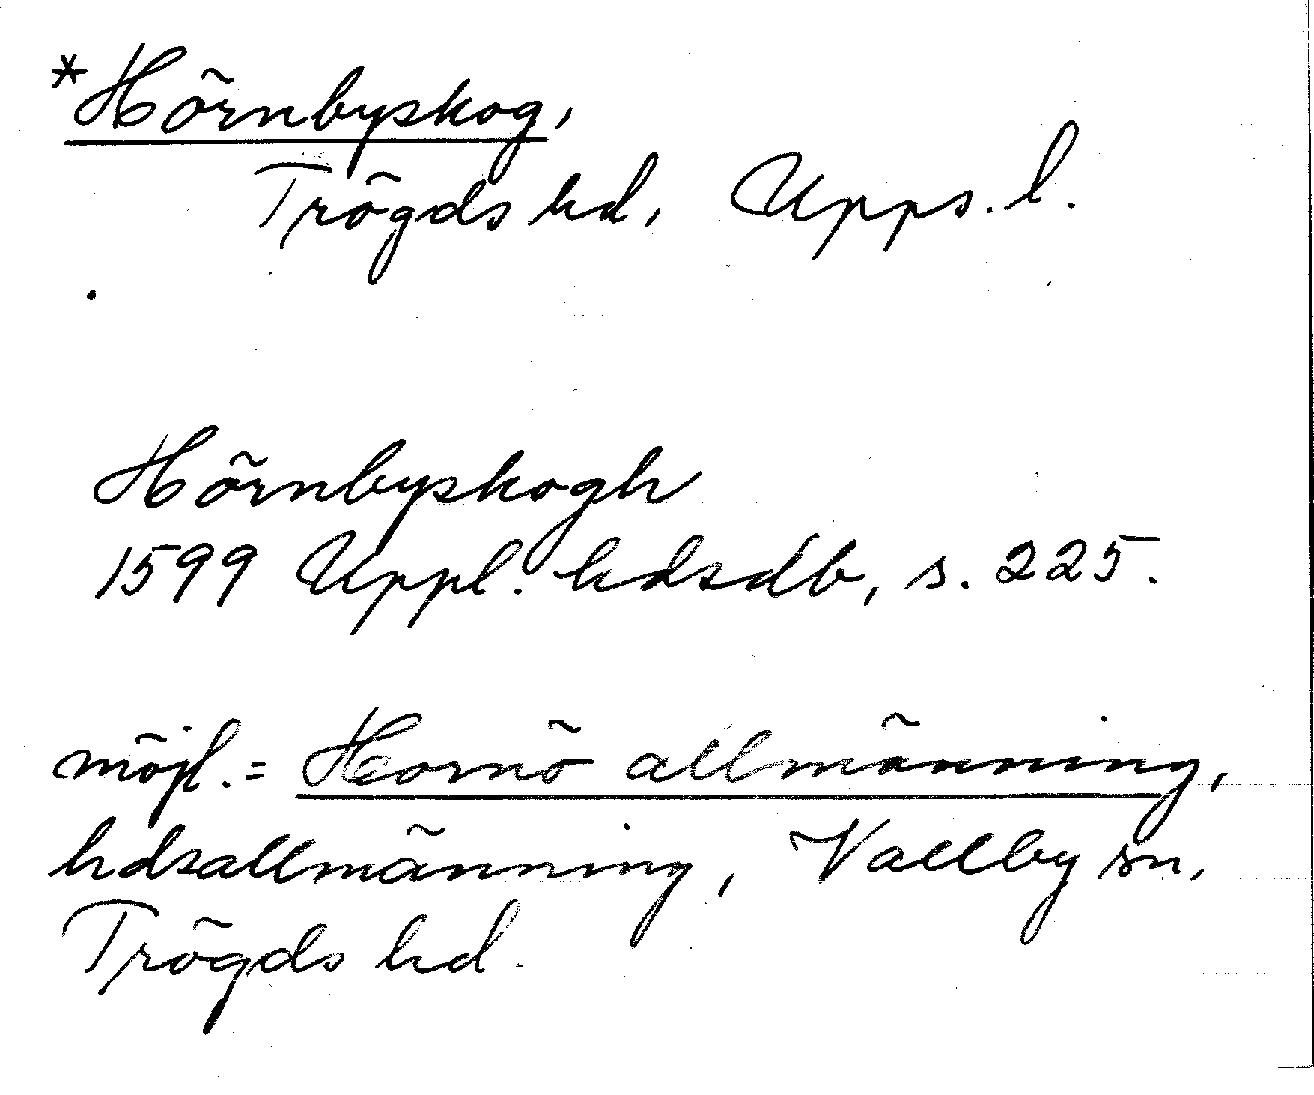 *Hörnbyskog,
Trögds hd, Upps. l.
Hörnbyskogh
1599 Uppl. hdsdb, s. 225.
möjl. = Hornö allmänning,
hdsallmänning, Vallby sn,
Trögds hd.